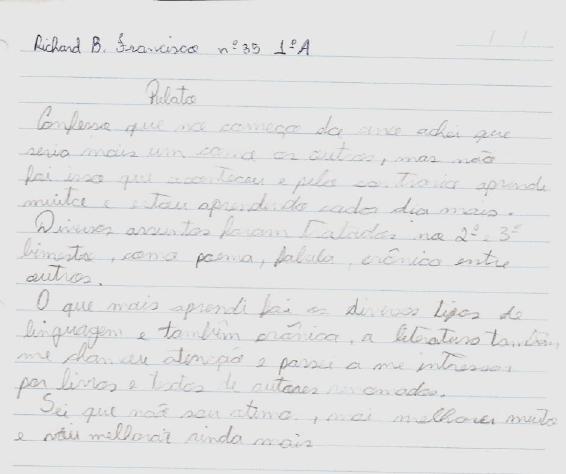 Richard B. Francisco nº 35 1ºA
Relato
Confesso que no começo do ano achei que
seria mais um como os outros, mas não
foi isso que aconteceu e pelo contrario aprendi
muito e estou aprendendo cada dia mais.
Diversos assuntos foram tratados no 2º e 3º
bimestre, como poema, fabula, crônica entre
outros.
O que mais aprendi foi os diversos tipos de
linguagem e também crônica, a literatura também
me chamou atenção e passei a me intressar
por livros e textos de autores renomados.
Sei que não sou otimo, mai melhorei muito
e vou melhorar ainda mais